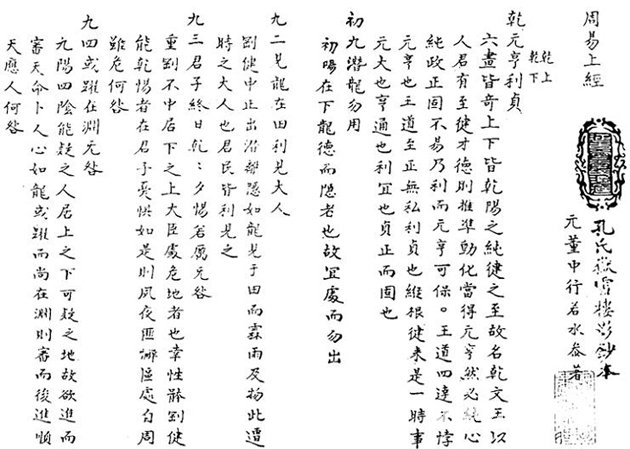 周易上經
孔氏嶽雪樓影鈔本
元董中行若水叅著
乾上
乾下
乾元亨利貞
六畫皆奇上下皆乾陽之純健之至故名乾文王以
人君有至健才德則推準動化當得元亨然必純心
純政正固不易乃利而元亨可保。王道四達不悖
元亨也王道至正無私利貞也縱根健来是一時事
元大也亨通也利宜也貞正而固也
初九潛龍勿用
初陽在下龍德而隱者也故宜處而勿出
九二見龍在田利見大人
劉健中正出沿離隱如龍見于田而霖雨及物此遭
時之大人也君民皆利見之
九三君子終日乾乾夕惕若厲无咎
重剛不中居下之上大臣處危地者也幸性體剛健
能乾惕者在君子憂快如是則夙夜匪懈區處自周
雖危何咎
九四或躍在淵无咎
九陽四陰能疑之人居上之下可疑之地故欲進而
審天命卜人心如龍或躍而尚在淵則審而後進順
天應人何咎